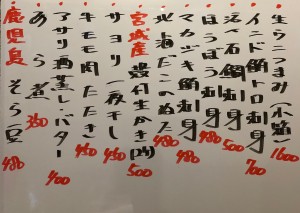 生うにつまみ(小箱) 1600
インドまぐろトロ刺身 700
活〆石鯛刺身 500
ほうぼう刺身 480
マカジキ刺身 480
地だこのぬた 480
宮城産 殻付生かき(2ヶ) 500
サヨリ一夜干し 450
牛モモ肉たたき 450
アサリ酒蒸しバター 400
あら煮 350
鹿児島 そら豆 480